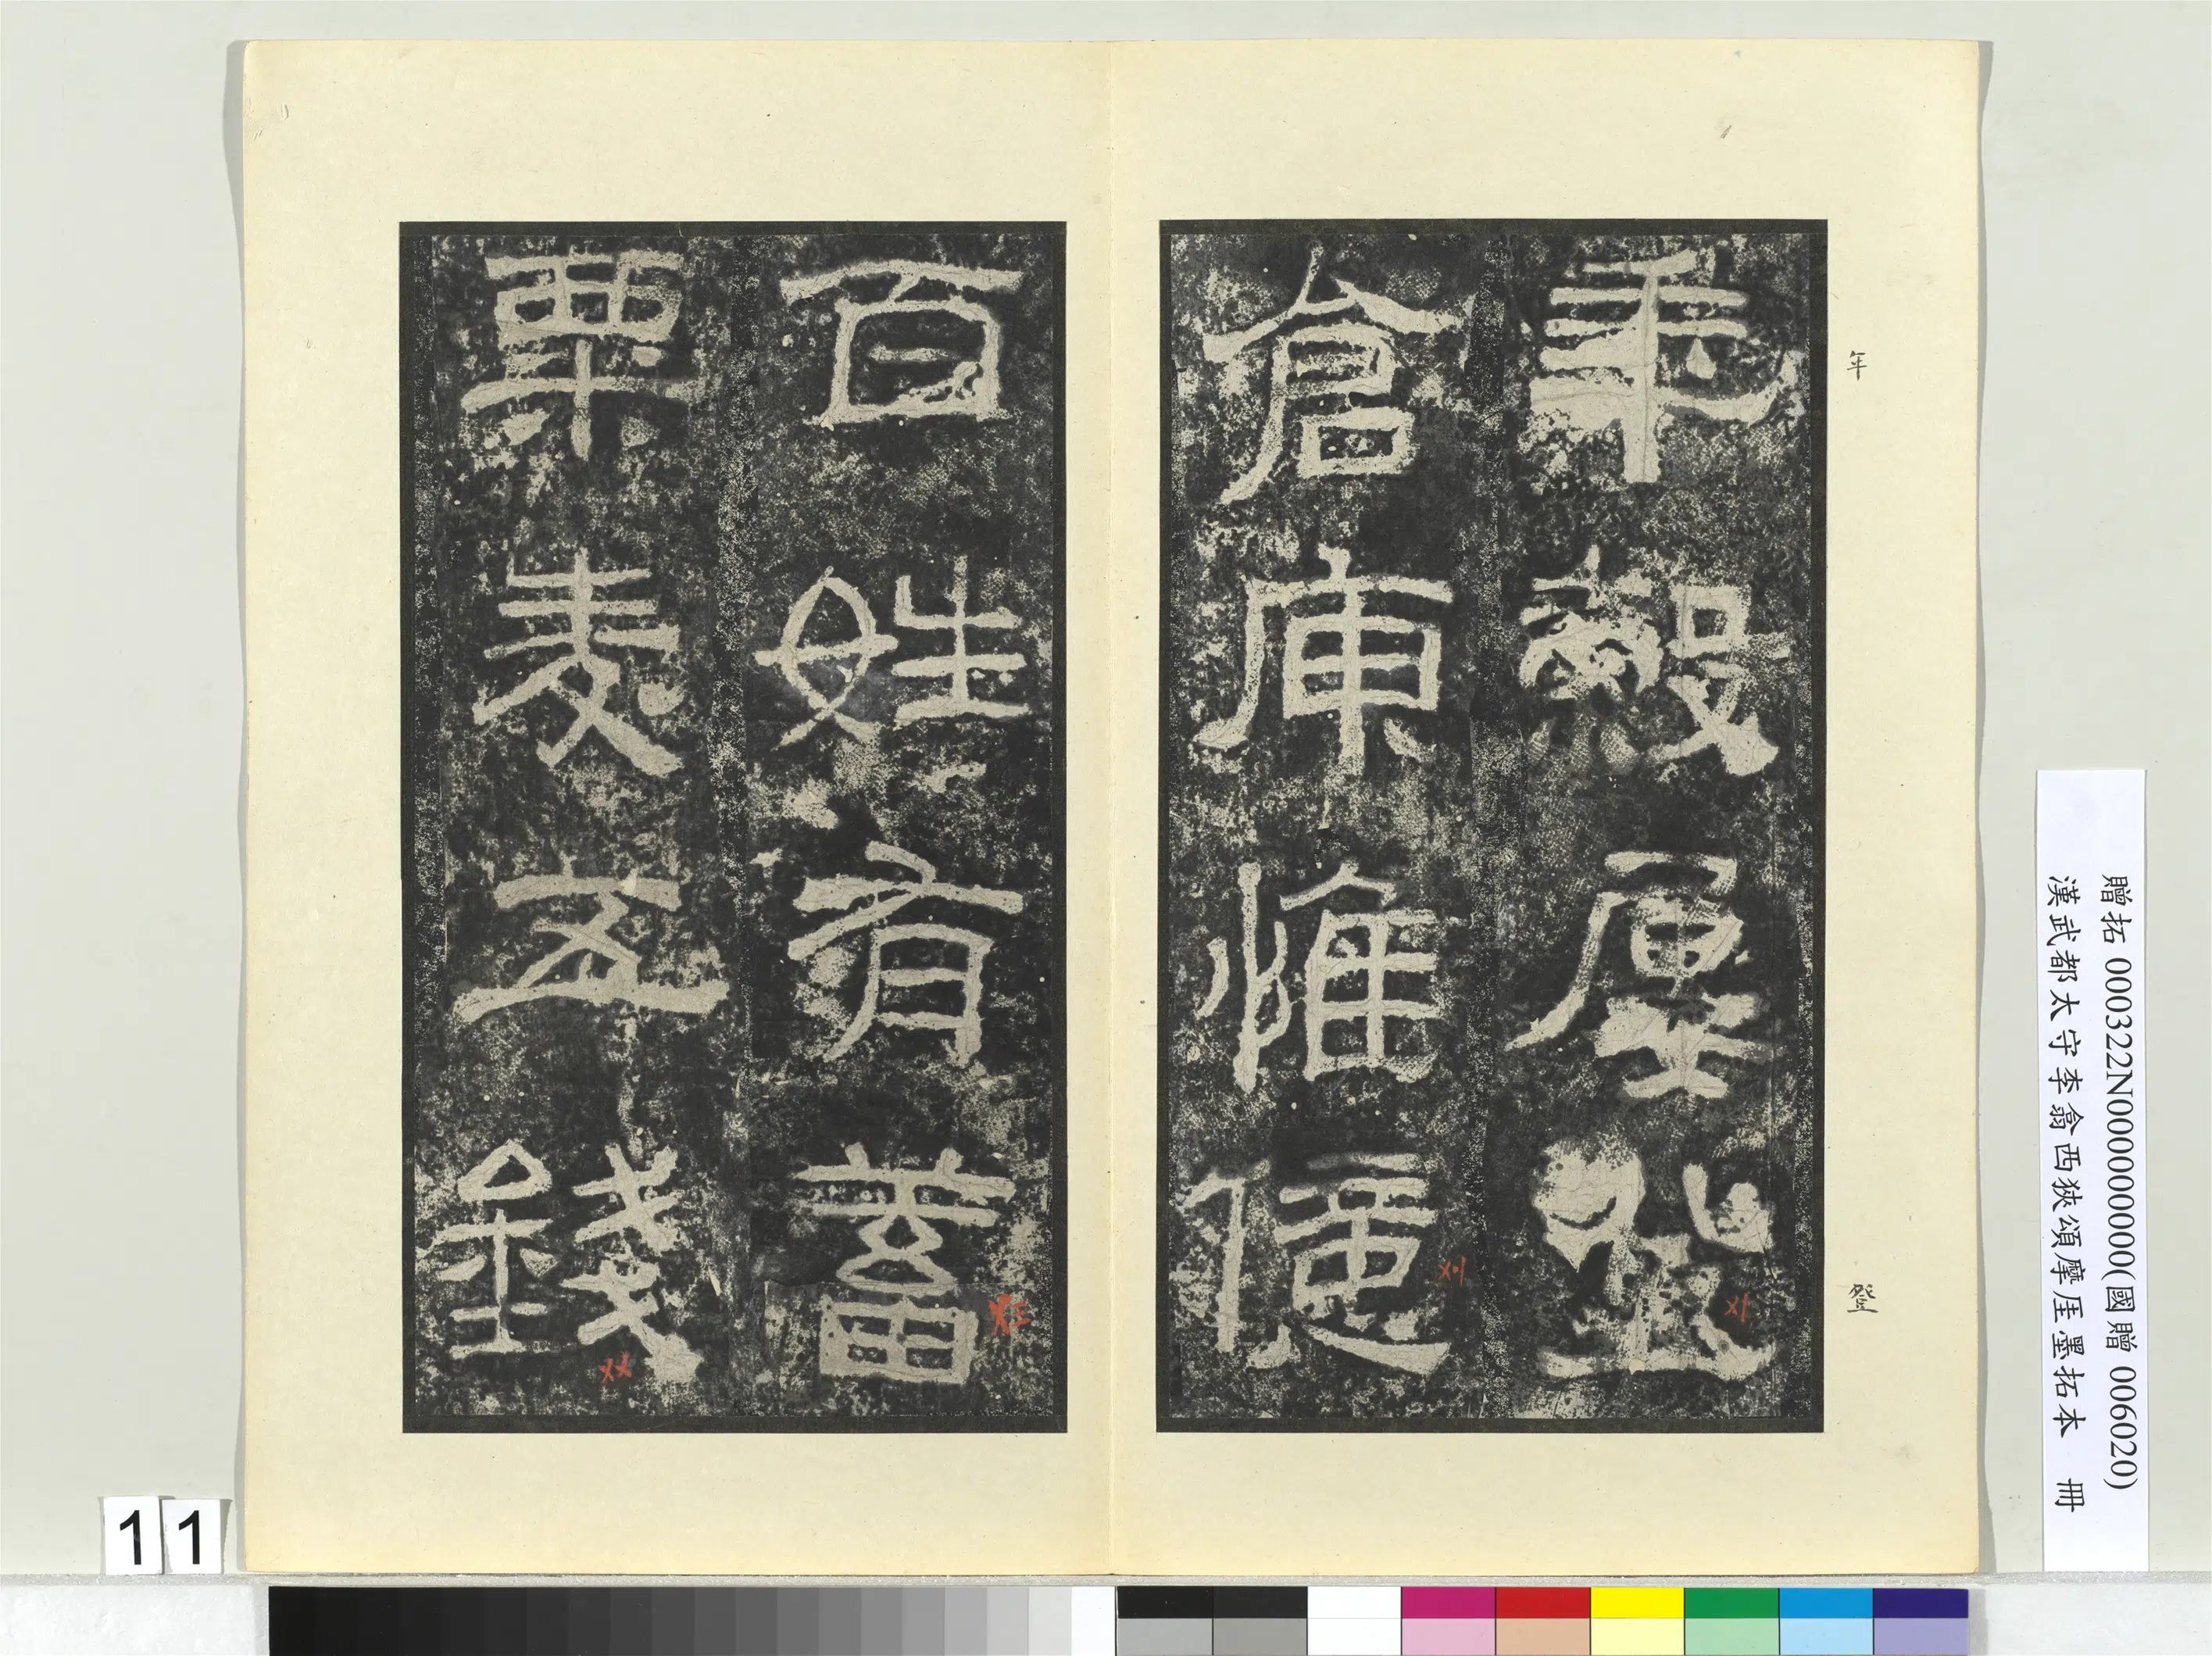 年
登
年穀屢登
〤〡
倉庾惟億
〤〢
百姓有蓄
〤三
粟麥五錢
〤〤
贈拓 000322N000000000(國贈 006020)
漢武都太守李翕西狹頌摩厓墨拓本 冊
11